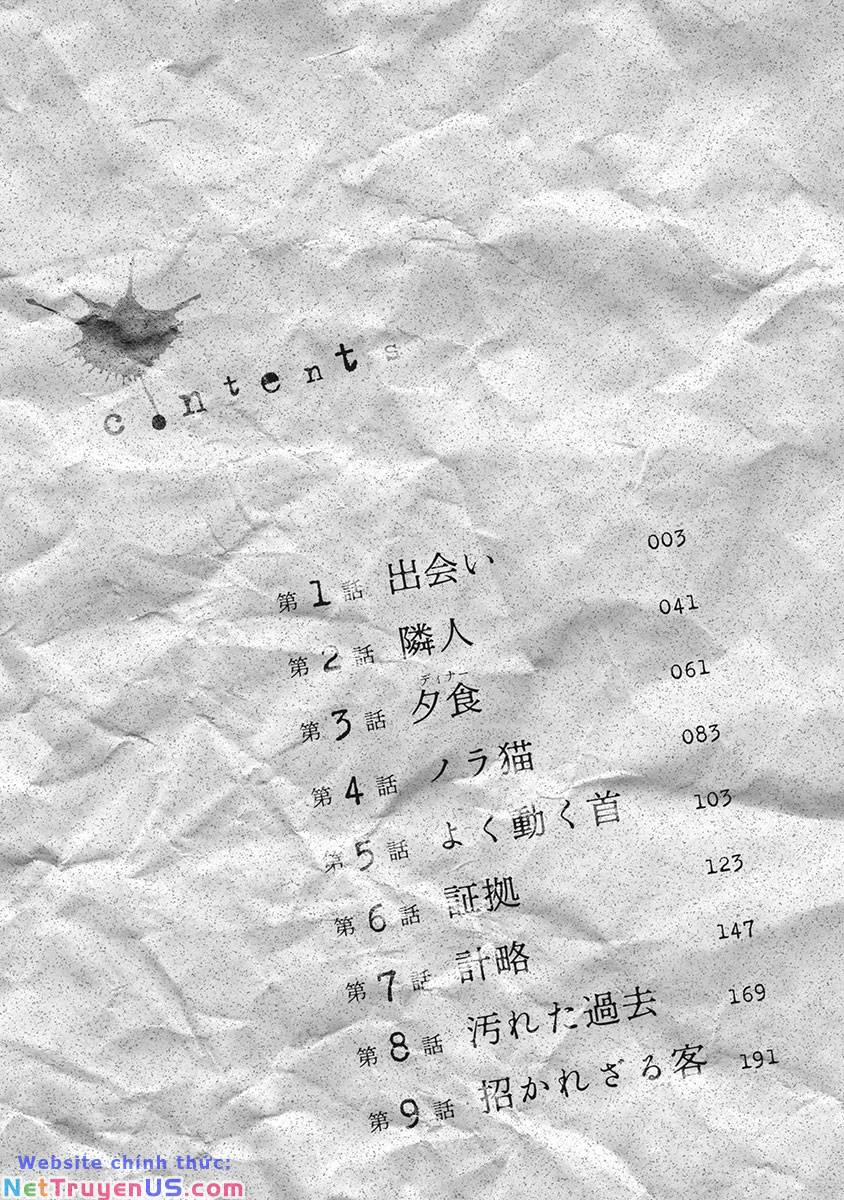 contents
第1話 出会い 003
第2話 隣人 041
ディナー
第3話 夕食 061
第4話 ノラ猫 083
第5話 よく動く首 103
第6話 証拠 123
第7話 計略 147
第8話 汚れた過去 169
第9話 招かれざる客 191
Website chính thức:
NetTruyenUS.com